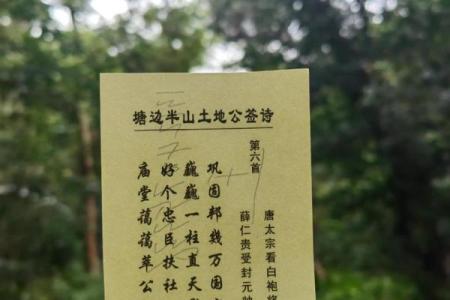 塘边半山土地公签诗
第六首
唐太宗看白袍
薛仁贵受封元
巩固邦畿万国
巍巍一柱直
好个忠臣扶社
庙堂蔼蔼萃公